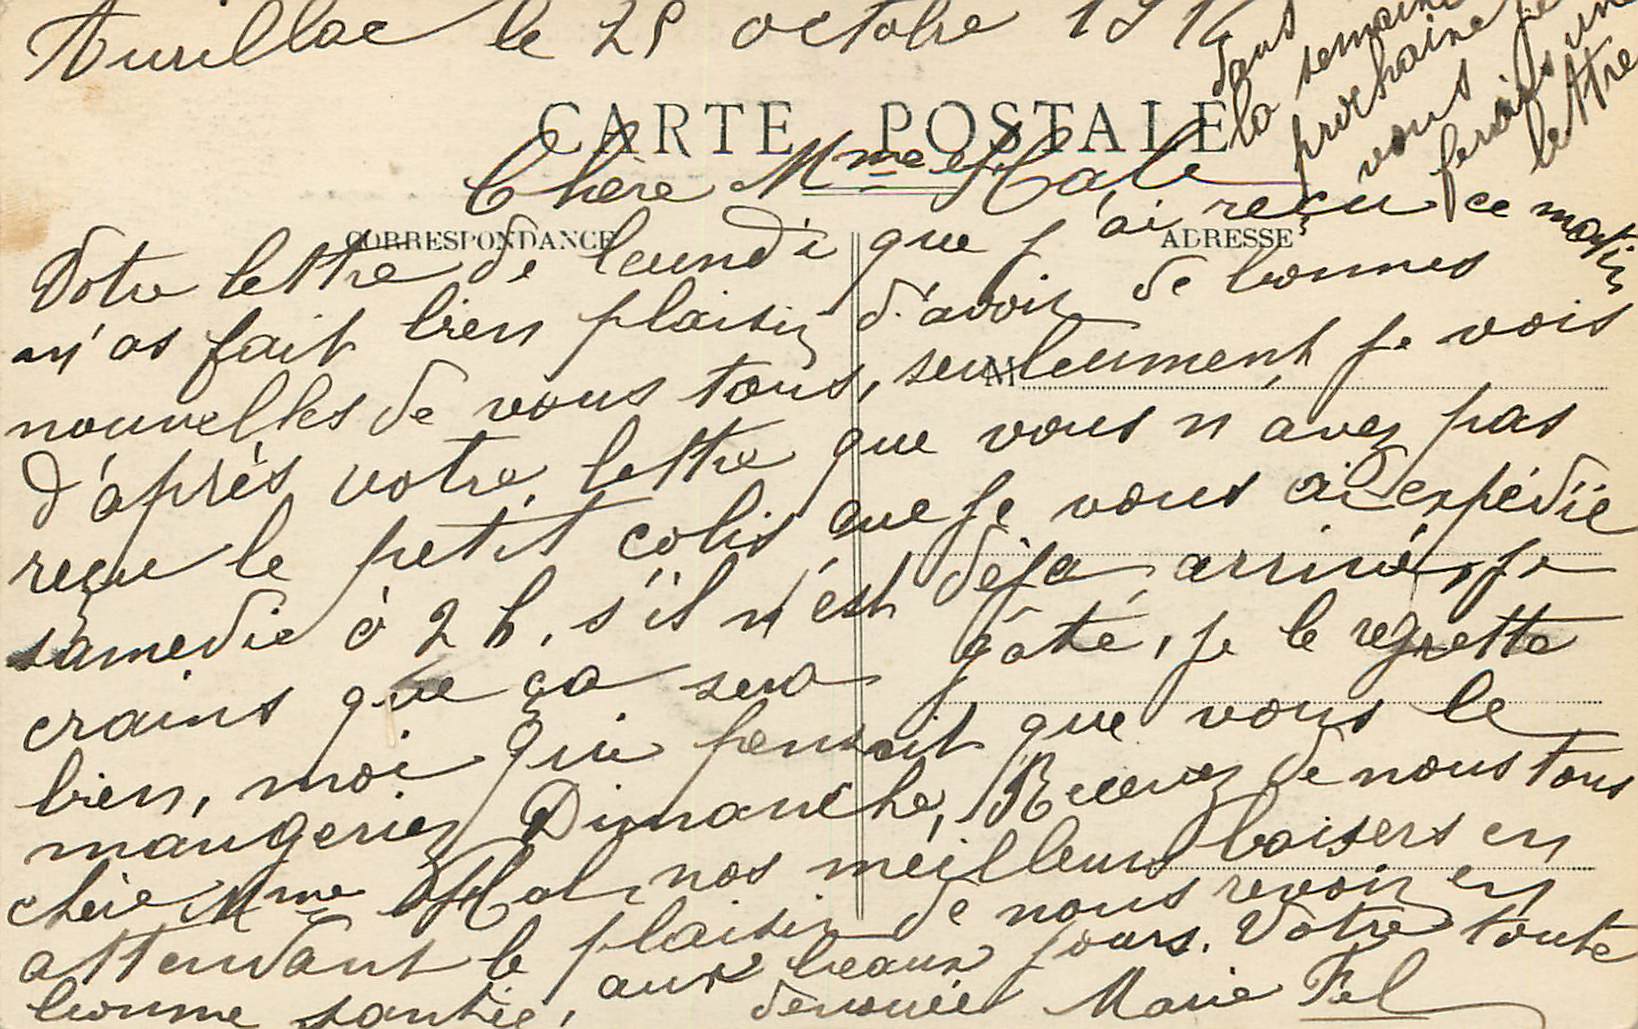 Aurillac le 25 octobre 191
dans
la semaine
prochaine je
vous ferais une
lettre
CARTE POSTALE
Chère Mme Hale
CORRESPONDANCE
ADRESSE
Votre lettre de lundi que j'ai reçu ce matin
m'as fait bien plaisir d'avoir de bonnes
nouvelles de vous tous, seuleument je vois
M
d'après votre lettre que vous n'avez pas
reçu le petit colis que je vous ai expédié
samedie à 2 h, s'il n'est déja arrivé, je
crains que ça sera gâté, je le regrette
bien, moi qui pensait que vous le
mangeriez Dimanche, Recevez de nous tous
chère Mme nos meilleurs baisers en
attendant le plaisir de nous revoir en
bonne santée, aux beaux jours. Votre toute
devouée Marie Fel